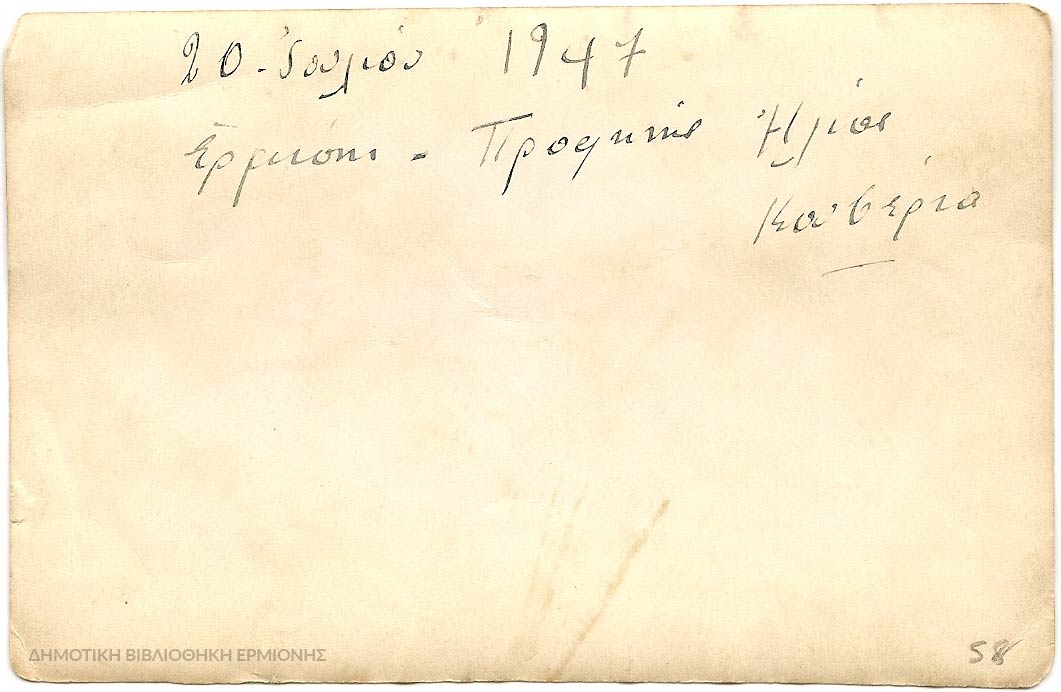 20 - Ιουλίου 1947
Ερμιόνη - Προφήτης Ηλίας
Κουβέρτα
ΔΗΜΟΤΙΚΗ ΒΙΒΛΙΟΘΗΚΗ ΕΡΜΙΟΝΗΣ
58